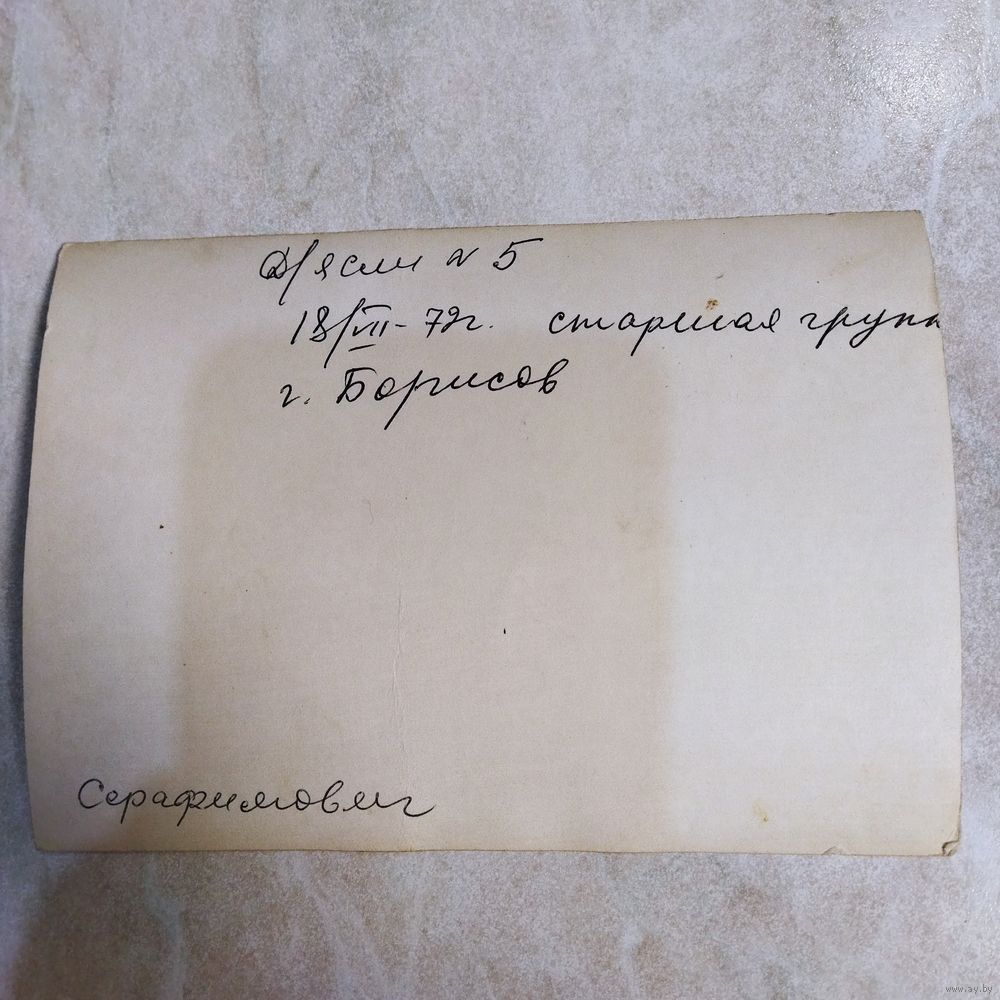 Д/ясли № 5
18/VII-72г. старшая групп
г. Борисов
Серафимович
www.ay.by